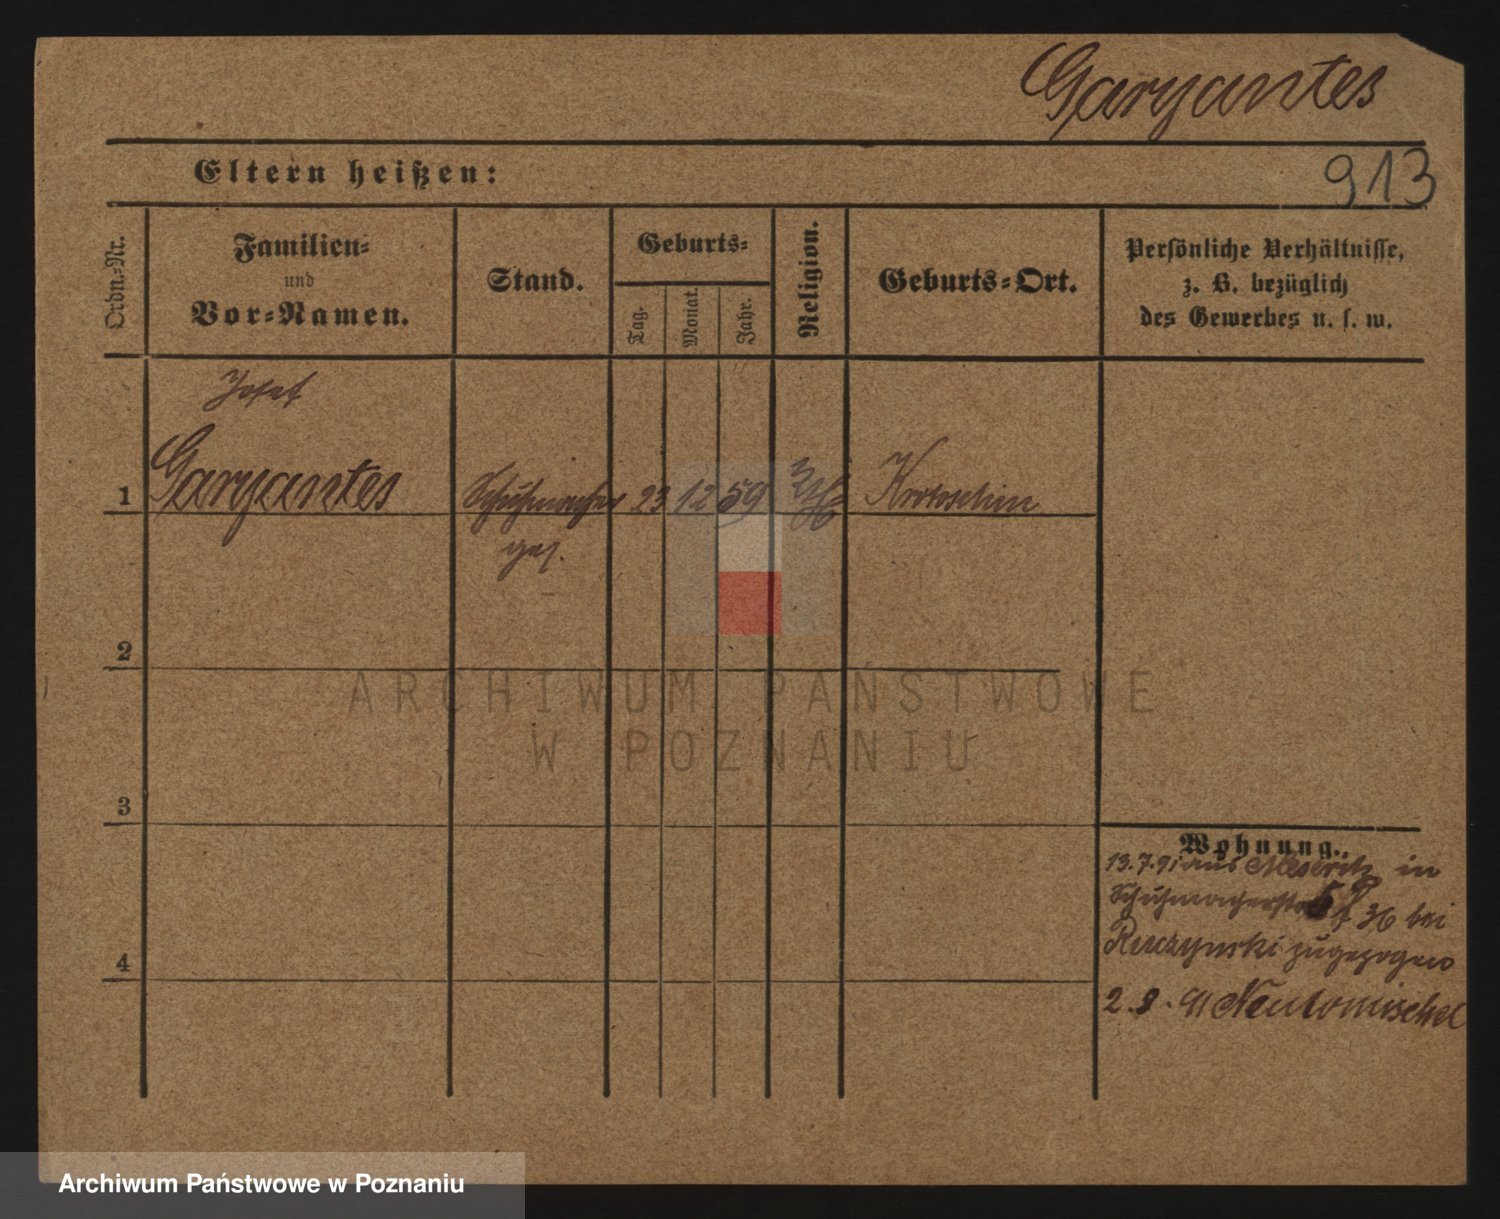 Garyantes
Eltern heißen:
913
Ordn.-Nr.
Familien-
und
Vor-Namen.
Stand.
Geburts-
Tag.
Monat.
Jahr.
Religion.
Geburts-Ort.
Persönliche Verhältnisse,
z. B. bezüglich
des Gewerbes u. s. w.
Josef
1 Garyantes Schuhmacher 23 12 59 Krotoschin
ges.
2
3
4
Wohnung.
13.7.91 aus Meseritz in
Schuhmacherstr 36 bei
Ruczynski zugezogen
2.8.91 Neutomischel
ARCHIWUM PAŃSTWOWE
W POZNANIU
Archiwum Państwowe w Poznaniu